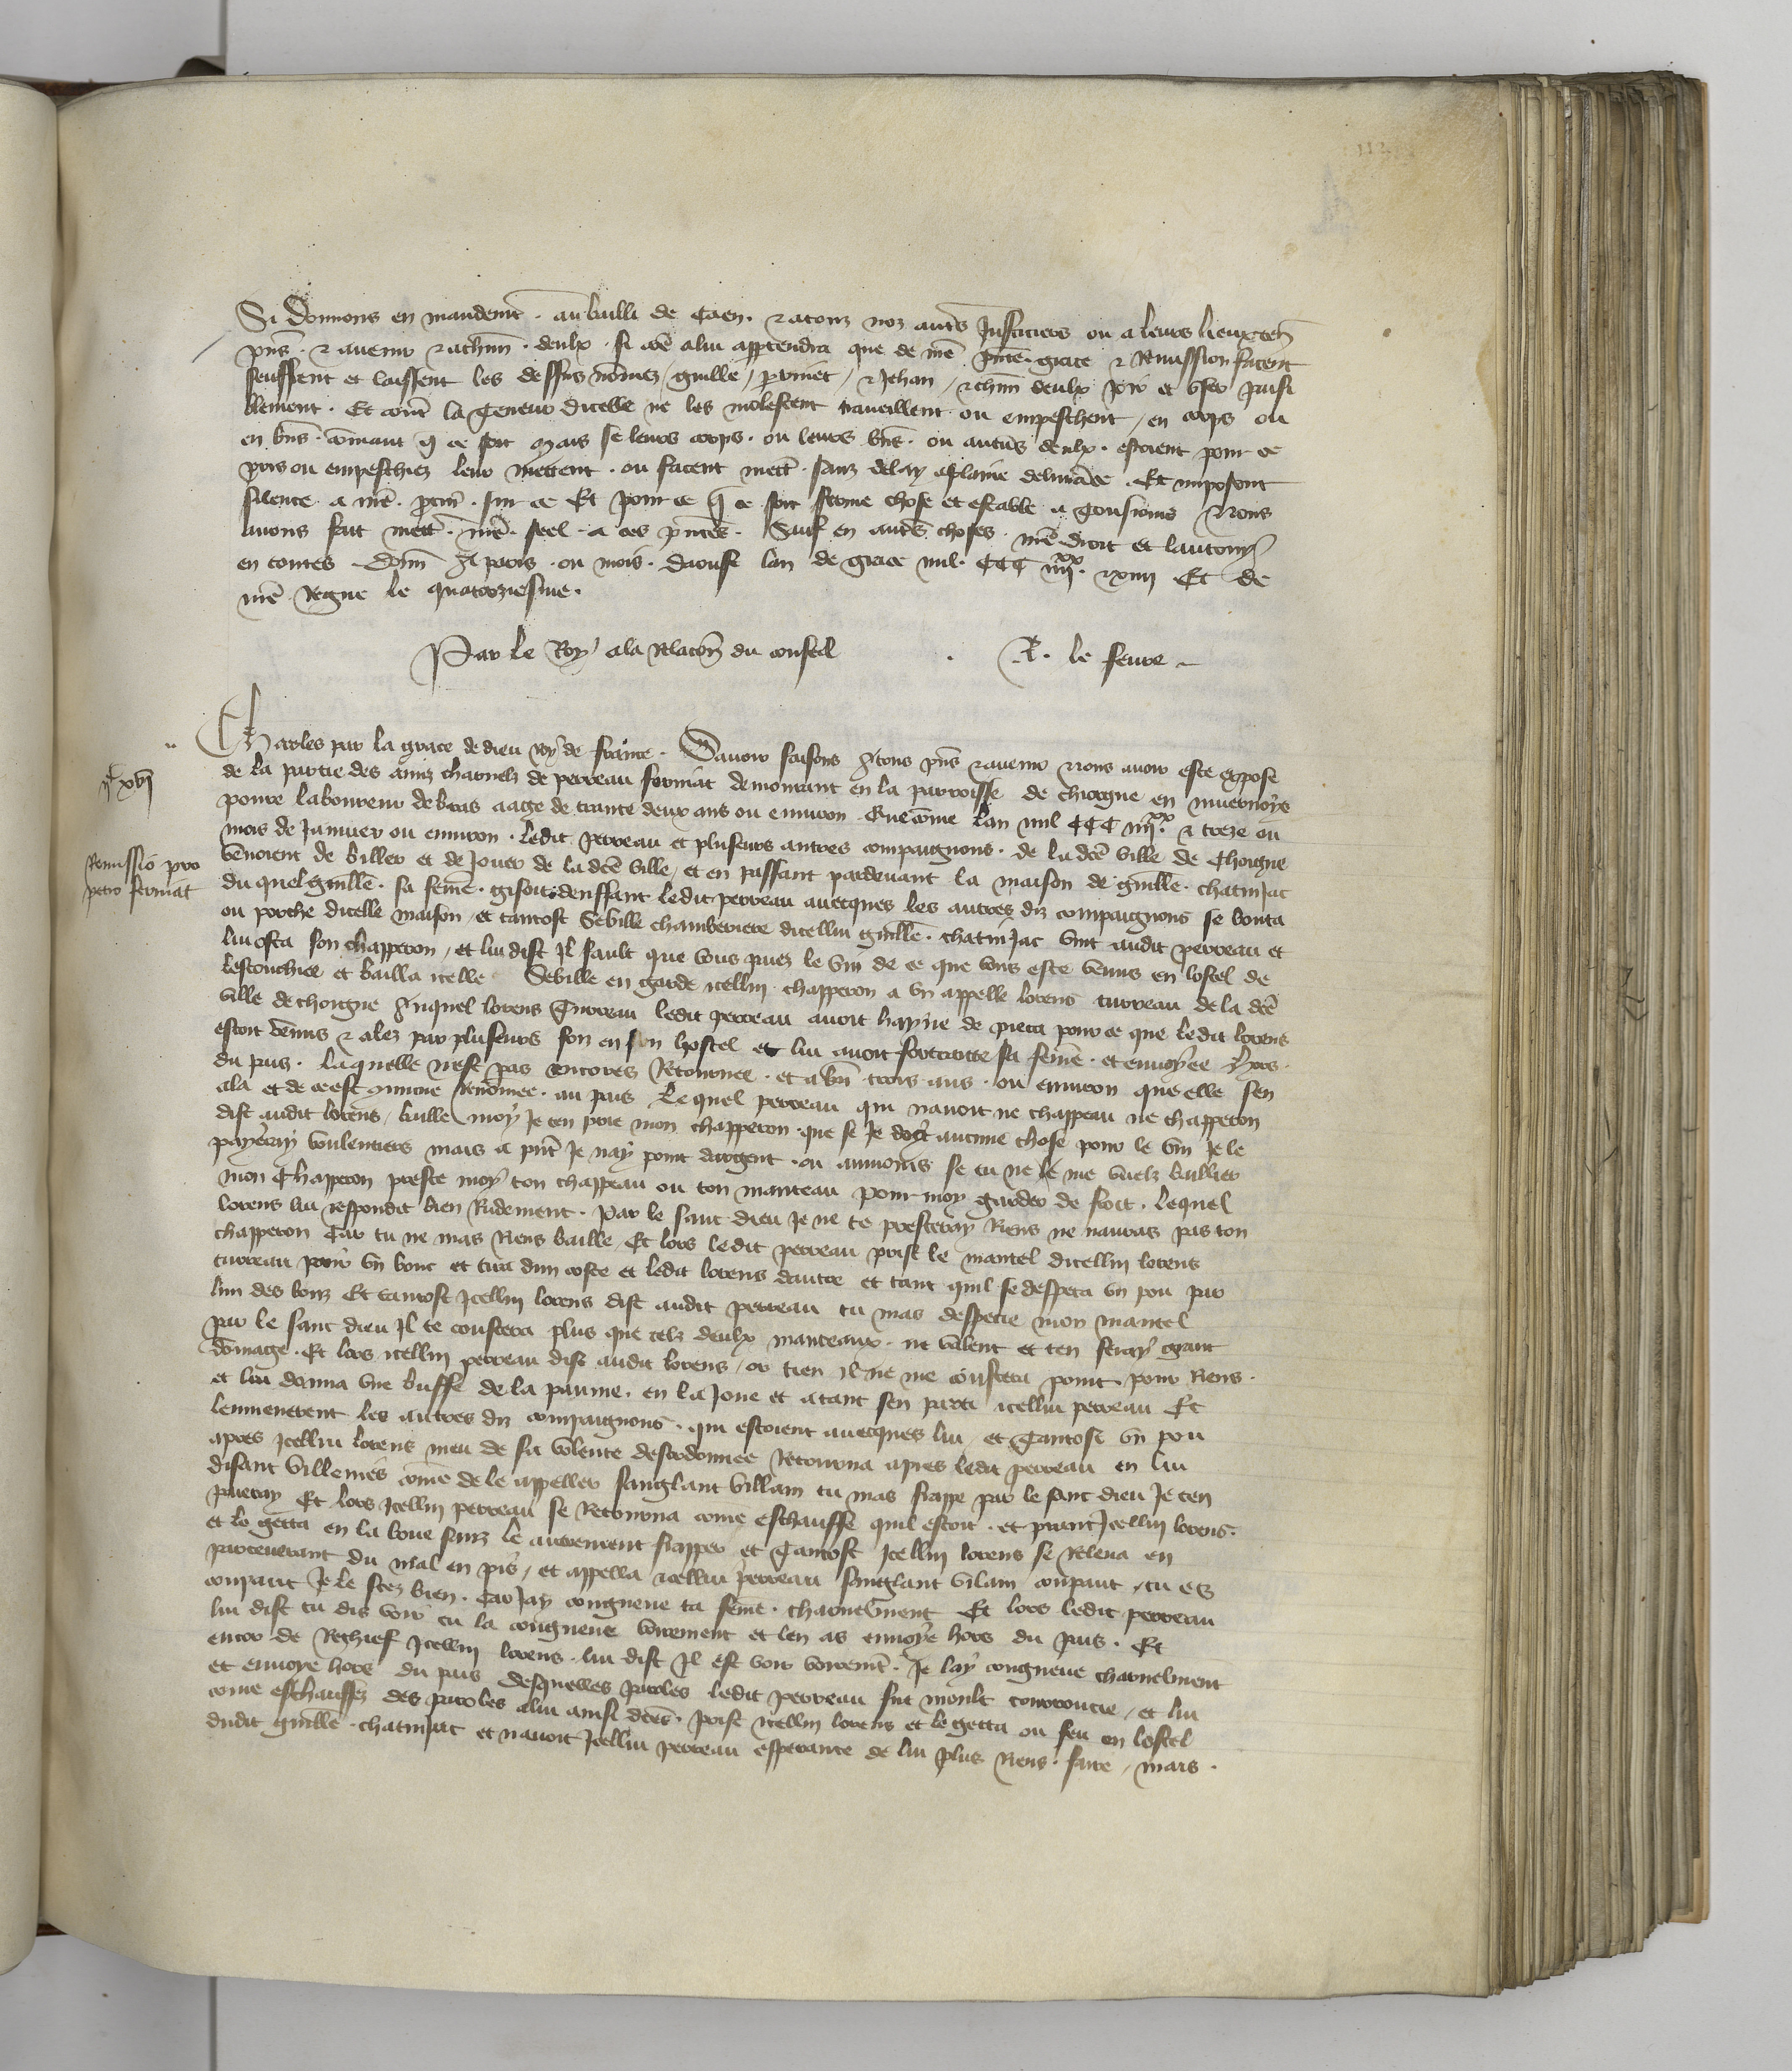 Si Donnons en mandemt. au bailli de Caen. & a touz noz autrs Justiciers ou a leurs lieuxten
pns. & avenir & a chun. deulx. si cōe a lui appartendra que de nre pnte. grace & Remission facent
seuffrent et laissent les dessus nōmez / guille / perrinet / & Jehan / & chun deulx joir et user paisi
blement. Et contr la teneur dicelle ne les molestent traveillent ou empeschent / en corps ou
en bns. cōmant q ce soit Mais se leurs corps. ou leurs bns. ou autres deulx. estoient pour ce
pris ou empeschiez leur mettent. ou facent mett. sanz delay a plaine delivrāce. Et imposons
silence a nre. procur. sur ce Et pour ce q ce soit ferme chose et estable a tousiours Nous
avons fait mett. nre. seel. a ces pntes. Sauf en autrs choses. nre droit et lautruy
en toutes. Donn A paris. ou mois. daoust lan de grace mil. CCC iiijxx. & xiiij Et de
nre Regne le quatorziesme.
Par le Roy a la Relacōn du conseil . R. le fevre
Charles par la grace de dieu roy de france. Savoir faisons A tous pns & avenir Nous avoir este expose
de la partie des amis charnelz de perreau fermat demourant en la parroisse de Chorgne en nivernoys
povre laboureur de bras aage de trante deux ans ou environ. Que cōme lan mil CCC iiijxx. & treze ou
mois de Janvier ou environ. ledit perreau et plusieurs autres compaignons. de la dce ville de Chorgne
venoient de biller et de Jouer de la dce ville / et en passant pardevant la maison de guille. chatinJac
du quel guille. sa feme. gisoit denffant ledit perreau avecques les autres diz compaignons se bouta
ou porche dicelle maison / et tantost Sebille chamberiere dicellui guille. chatinJac vint audit perreau et
lui osta son chapperon / et lui dist Il fault que vous paiez le vin de ce que vous este venus en lostel de
lescouchiee et bailla icelle Sebille en garde icellui chapperon a un appelle lorens turreau de la dce
ville de chorgne Auquel lorens Turreau ledit perreau avoit hayne de pieca pour ce que ledit lorens
estoit venus & alez par plusieurs fois en son hostel et lui avoit fortraitte sa feme. et envoyee hors.
du pais. laquelle nest pas encores Retournee. et a bn trois ans. ou environ que elle sen
ala et de ce est cōmune Renōmee. au pais Lequel perreau qui navoit ne chappeau ne chapperon
dist audit lorens / baille moy Je ten prie mon chapperon. que se Je doy aucune chose pour le vin Je le
payeray voulentiers mais a pnt Je nay point dargent. ou aumoins se tu ne le me vuelz baillier
mon Chapperon preste moy ton chappeau ou ton manteau pour moy garder de froit. Lequel
lorens lui respondit bien Rudement. Par le sanc dieu Je ne te presteray Riens ne nauras pas ton
chapperon Car tu ne mas Riens baille Et lors ledit perreau prist le mantel dicellui lorens
turreau par un bout et tira dun coste et ledit lorens dautre et tant quil se despeca un pou par
lun des bouz Et tantost Icellui lorens dist audit perreau tu mas despecie mon mantel
par le sanc dieu Il te coustera plus que telz deulx manteaux. ne valent et ten feray grant
dōmage. Et lors icellui perreau dist audit lorens / or tien il ne me coustera point pour Riens.
et lui donna une buffe de la paume. en la Joue et atant sen parti icellui perreau Et
lenmenerent les autres diz compaignons. qui estoient avecques lui / et Tantost un pou
apres Icellui lorens meu de sa volente desordonnee Retourna apres ledit perreau en lui
disant villenies cōme de le appeller sanglant villain tu mas frappe par le sanc dieu Je ten
paieray Et lors Icellui perreau se Retourna come eschauffe quil estoit. et print Icellui lorens.
et le getta en la boue sanz le autrement frapper et Tantost Icellui lorens se Releva en
parceverant du mal en pis / et appella icellui perreau sanglant vilain coupaut / tu es
coupaut Je le scez bien. Car Jay congneue ta feme. charnelment Et lors ledit perreau
lui dist tu dis voir tu la congneue voirement et len as envoye hors du pais. Et
encor de Rechief Icellui lorens. lui dist Il est voir voiremt. Je lay congneue charnelment
et envoye hors du pais Desquelles paroles ledit perreau fut moult courroucie / et lui
come eschauffez des paroles a lui ainsi dces. prist icellui lorens et le getta ou feu en lostel
dudit guille. chatinJac et navoit Icellui perreau esperance de lui plus Riens. faire / mais.
iiijxxxvj
Remissio pro
petro fermat